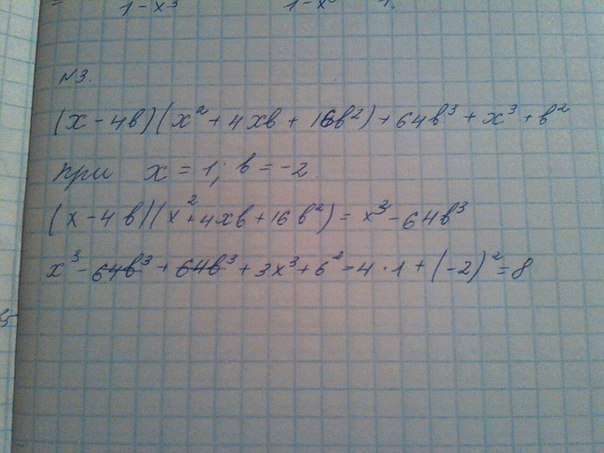 1-x³ 1-x³
N3.
(x - 4в)(x² + 4xв + 16в²) + 64в³ + x³ + в²
при x = 1; в = -2
(x - 4в)(x² + 4xв + 16в²) = x³ - 64в³
x³ - 64в³ + 64в³ + 3x³ + в² = 4 · 1 + (-2)² = 8